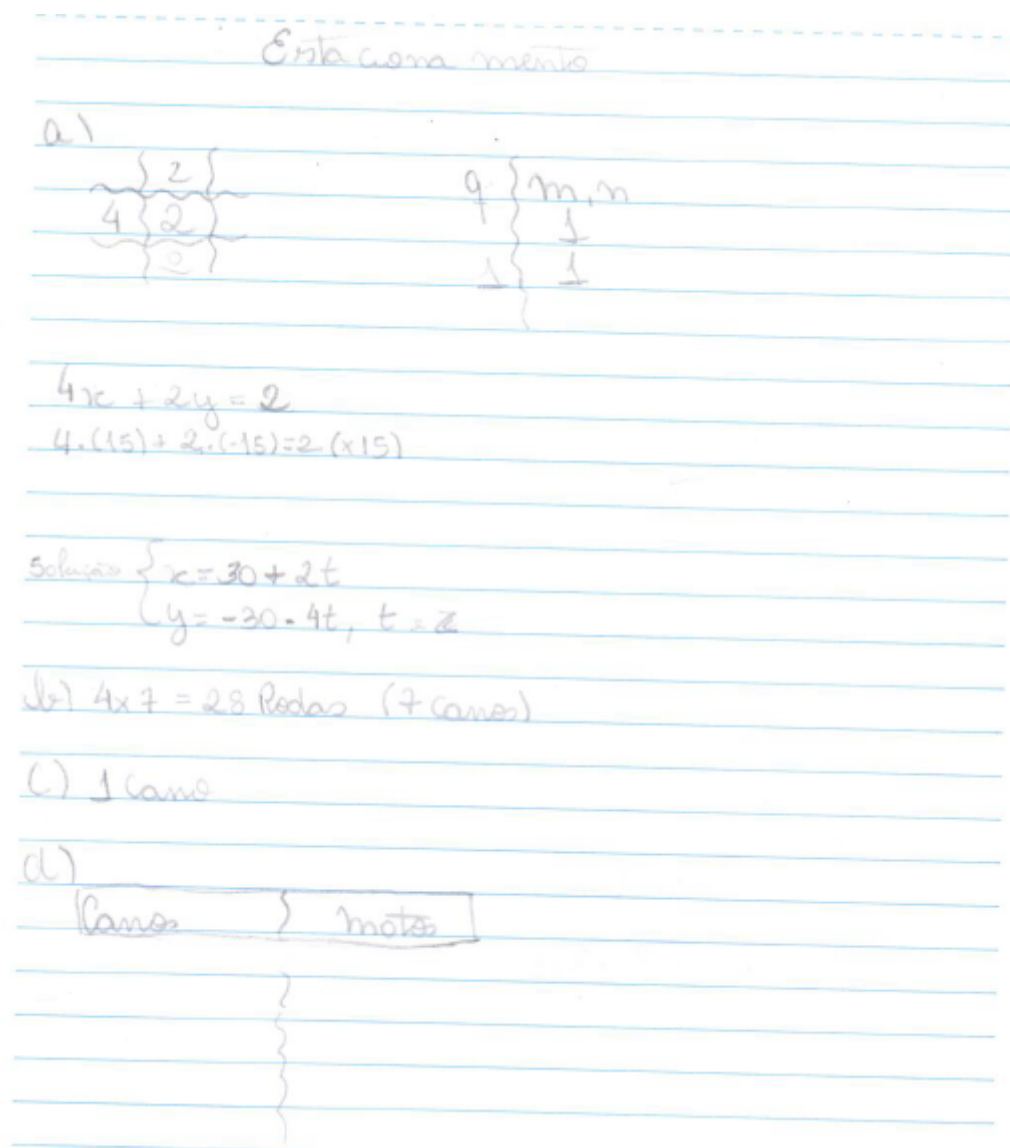 Estacionamento
a)
2
4 2
0
q m, n
1
1 1
4x + 2y = 2
4.(15) + 2.(-15)=2 (x15)
Solução { x = 30 + 2t
y = -30 - 4t, t = Z
b) 4x7 = 28 Rodas (7 carros)
C) 1 Carro
d)
Carros motos